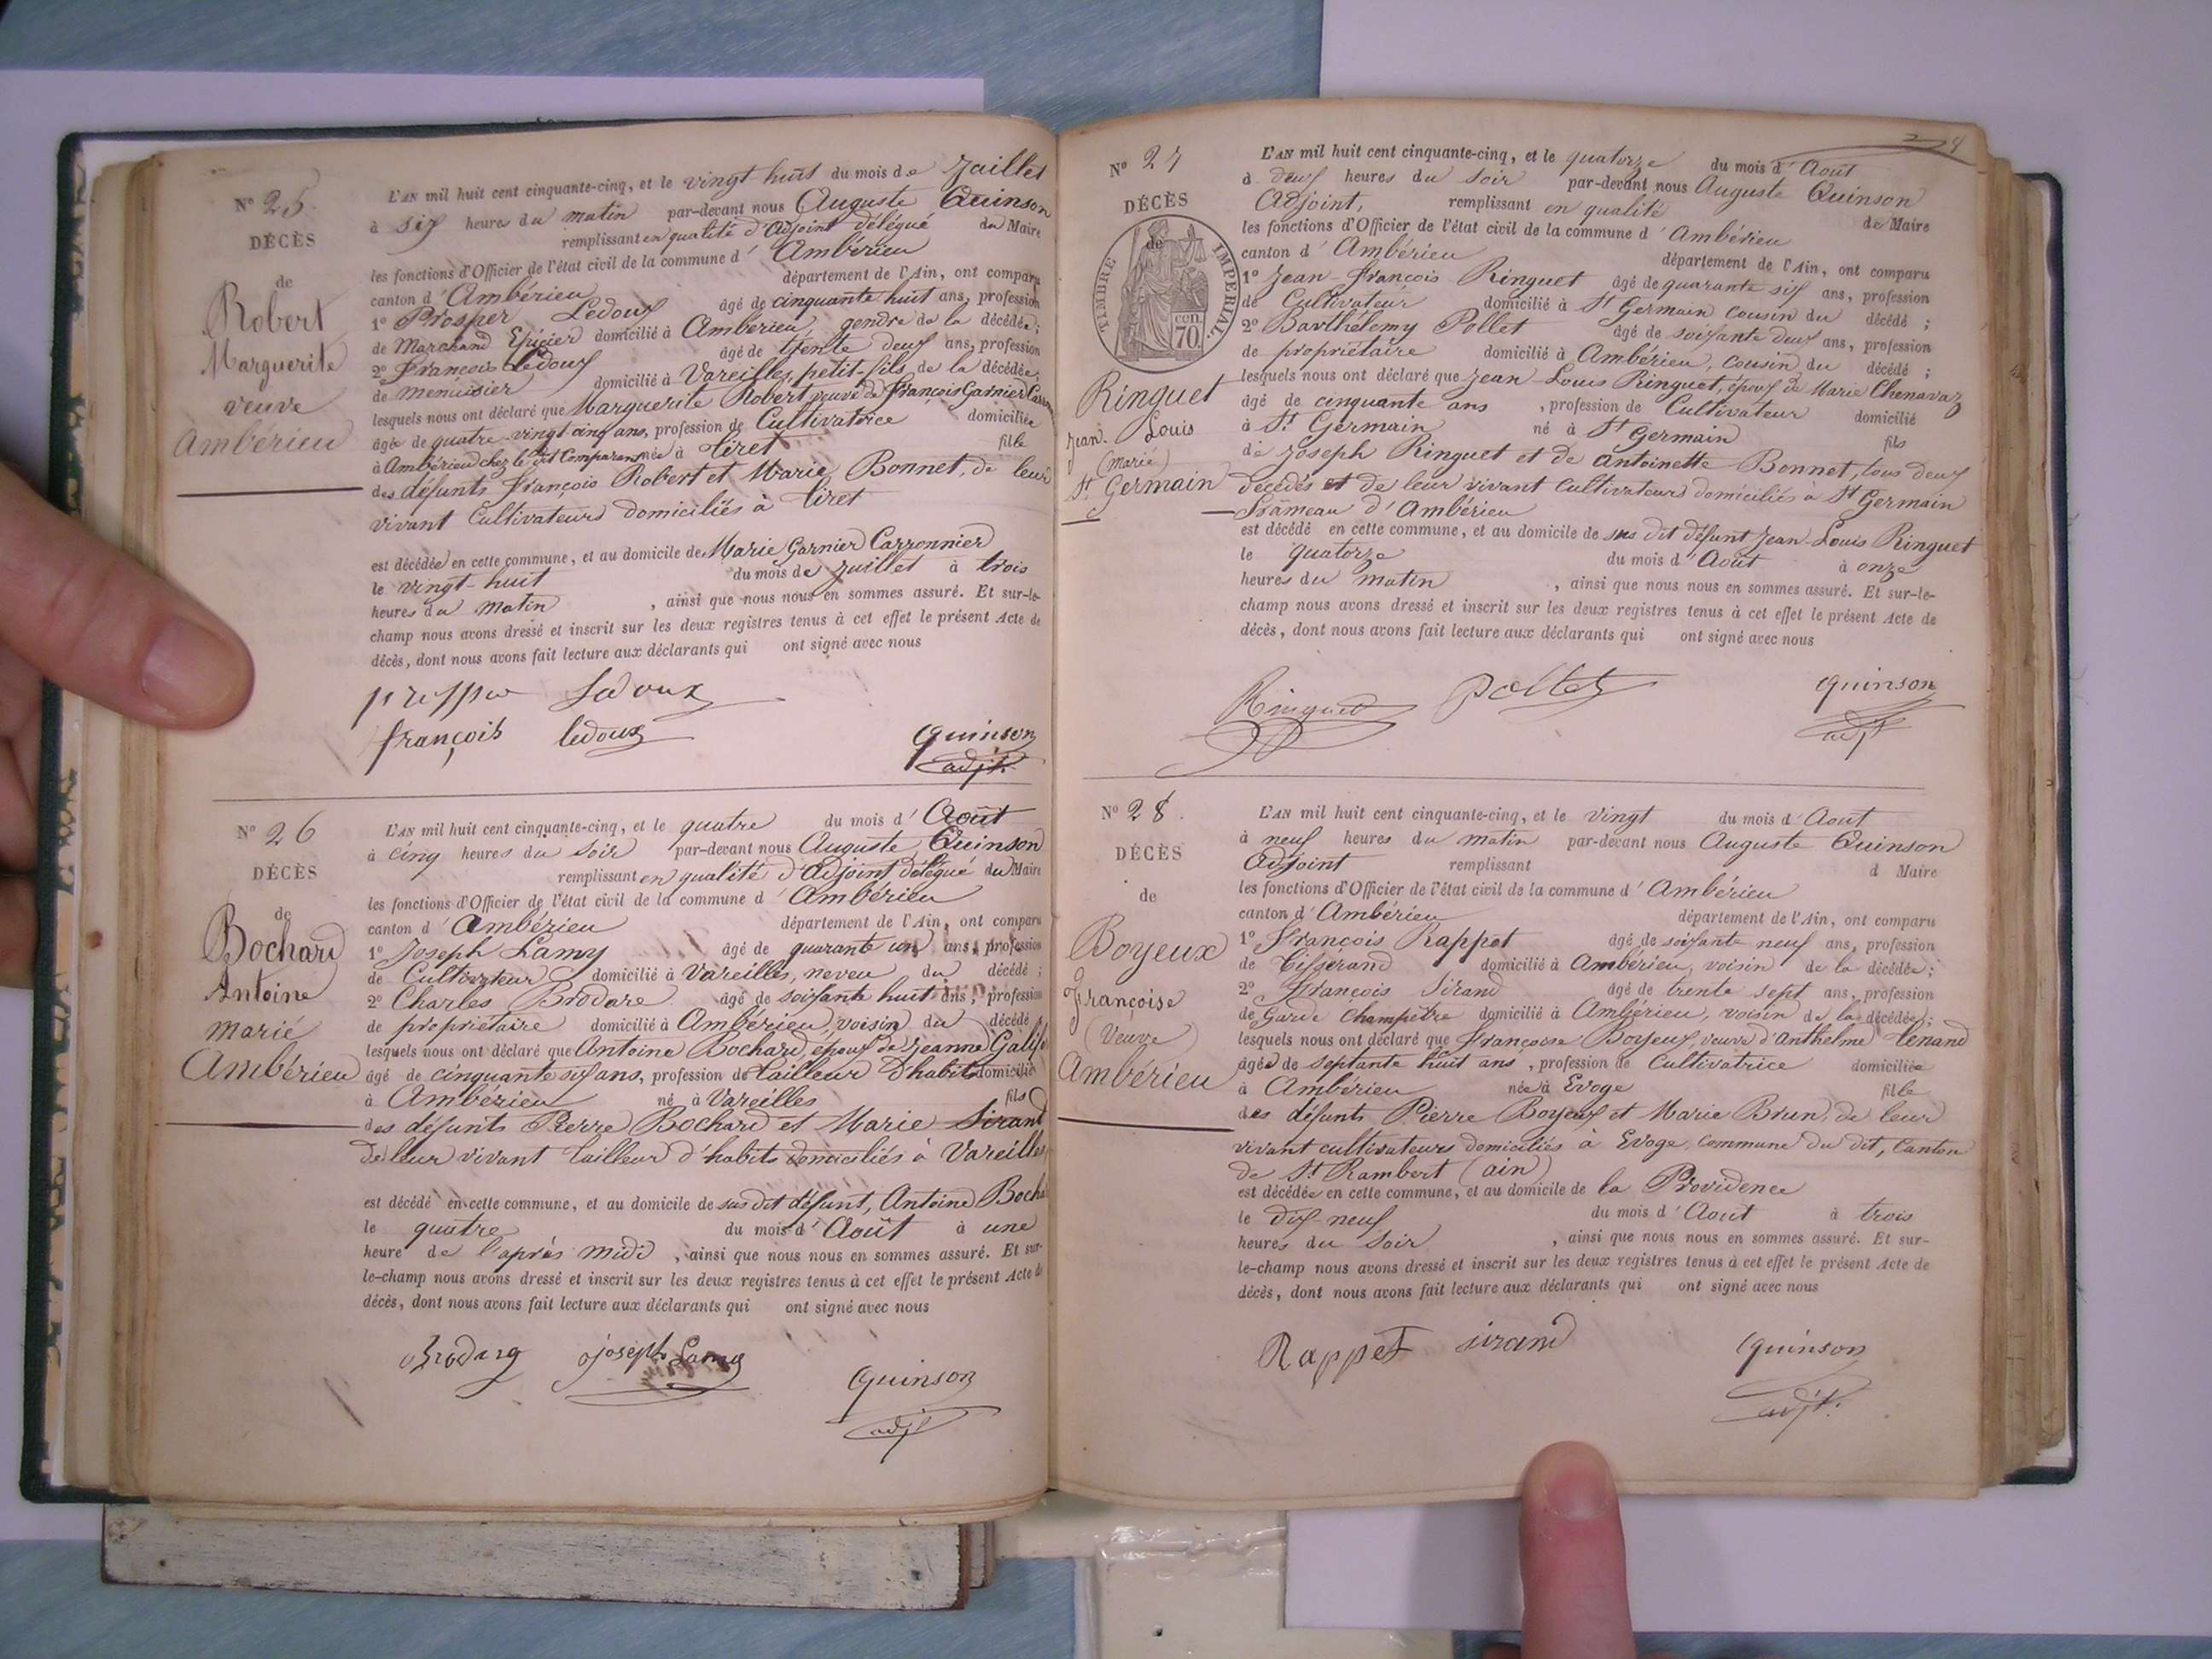 Nº 25.
DÉCÈS
de
Robert
Marguerite
veuve
Ambérieu
L'AN mil huit cent cinquante-cinq, et le vingt huit du mois de Juillet
à six heures du matin par-devant nous Auguste Quinson
remplissant en qualité d'Adjoint délégué du Maire
les fonctions d'Officier de l'état civil de la commune d'Ambérieu
canton d'Ambérieu département de l'Ain, ont comparu
1º Prosper Ledoux âgé de cinquante huit ans, profession
de Marchand Epicier domicilié à Ambérieu, gendre de la décédée;
2º François Ledoux âgé de trente deux ans, profession
de menuisier domicilié à Vareilles, petit-fils de la décédée;
lesquels nous ont déclaré que Marguerite Robert veuve de François Garnier
âgée de quatre-vingt cinq ans, profession de Cultivatrice domiciliée
à Ambérieu chez le dit Comparant née à Tiret fille
des défunts François Robert et Marie Bonnet, de leur
vivant Cultivateurs domiciliés à Tiret
est décédée en cette commune, et au domicile de Marie Garnier Carronnier
le vingt-huit du mois de Juillet à trois
heures du matin, ainsi que nous nous en sommes assuré. Et sur-le-
champ nous avons dressé et inscrit sur les deux registres tenus à cet effet le présent Acte de
décès, dont nous avons fait lecture aux déclarants qui ont signé avec nous
prosper Ledoux
françois ledoux quinson
adjt.
Nº 26
DÉCÈS
de
Bochard
Antoine
marié
Ambérieu
L'AN mil huit cent cinquante-cinq, et le quatre du mois d'Août
à cinq heures du soir par-devant nous Auguste Quinson
remplissant en qualité d'Adjoint délégué du Maire
les fonctions d'Officier de l'état civil de la commune d'Ambérieu
canton d'Ambérieu département de l'Ain, ont comparu
1º Joseph Lamy âgé de quarante un ans, profession
de Cultivateur domicilié à Vareilles, neveu du décédé;
2º Charles Brodare âgé de soixante huit ans, profession
de propriétaire domicilié à Ambérieu, voisin du décédé
lesquels nous ont déclaré que Antoine Bochard, époux de Jeanne
âgé de cinquante six ans, profession de tailleur d'habits domicilié
à Ambérieu né à Vareilles fils
des défunts Pierre Bochard et Marie Sirand
de leur vivant tailleur d'habits domiciliés à Vareilles
est décédé en cette commune, et au domicile de sus dit défunt, Antoine Bochard
le quatre du mois d'Août à une
heure de l'après midi, ainsi que nous nous en sommes assuré. Et sur-
le-champ nous avons dressé et inscrit sur les deux registres tenus à cet effet le présent Acte de
décès, dont nous avons fait lecture aux déclarants qui ont signé avec nous
joseph Lamy
quinson
adjt
Nº 27
DÉCÈS
de
TIMBRE IMPERIAL.
cen.
70.
Ringuet
Jean-Louis
(Marié)
St Germain
L'AN mil huit cent cinquante-cinq, et le quatorze du mois d'Août
à deux heures du soir par-devant nous Auguste Quinson
Adjoint, remplissant en qualité de Maire
les fonctions d'Officier de l'état civil de la commune d'Ambérieu
canton d'Ambérieu département de l'Ain, ont comparu
1º Jean-François Ringuet âgé de quarante six ans, profession
de Cultivateur domicilié à St Germain cousin du décédé;
2º Barthélemy Pollet âgé de soixante deux ans, profession
de propriétaire domicilié à Ambérieu, cousin du décédé;
lesquels nous ont déclaré que Jean-Louis Ringuet, époux de Marie Chenavaz
âgé de cinquante ans, profession de Cultivateur domicilié
à St Germain né à St Germain fils
de Joseph Ringuet et de Antoinette Bonnet, tous deux
décédés et de leur vivant Cultivateurs domiciliés à St Germain
hameau d'Ambérieu
est décédé en cette commune, et au domicile de sus dit défunt Jean-Louis Ringuet
le quatorze du mois d'Août à onze
heures du matin, ainsi que nous nous en sommes assuré. Et sur-le-
champ nous avons dressé et inscrit sur les deux registres tenus à cet effet le présent Acte de
décès, dont nous avons fait lecture aux déclarants qui ont signé avec nous
Ringuet Pollet quinson
adjt
Nº 28.
DÉCÈS
de
Boyeux
Françoise
(Veuve)
Ambérieu
L'AN mil huit cent cinquante-cinq, et le vingt du mois d'Aout
à neuf heures du matin par-devant nous Auguste Quinson
Adjoint remplissant d Maire
les fonctions d'Officier de l'état civil de la commune d'Ambérieu
canton d'Ambérieu département de l'Ain, ont comparu
1º François Rappet âgé de soixante neuf ans, profession
de Tisserand domicilié à Ambérieu, voisin de la décédée;
2º François Sirand âgé de trente sept ans, profession
de Garde Champêtre domicilié à Ambérieu, voisin de la décédée;
lesquels nous ont déclaré que Françoise Boyeux, veuve d'Anthelme Tenand
âgée de septante huit ans, profession de Cultivatrice domiciliée
à Ambérieu née à Evoge fille
des défunts Pierre Boyeux et Marie Brun, de leur
vivant cultivateurs domiciliés à Evoge, commune du dit, Canton
de St Rambert (ain)
est décédée en cette commune, et au domicile de la Providence
le dix-neuf du mois d'Aout à trois
heures du soir, ainsi que nous nous en sommes assuré. Et sur-
le-champ nous avons dressé et inscrit sur les deux registres tenus à cet effet le présent Acte de
décès, dont nous avons fait lecture aux déclarants qui ont signé avec nous
Rappet sirand quinson
adjt.